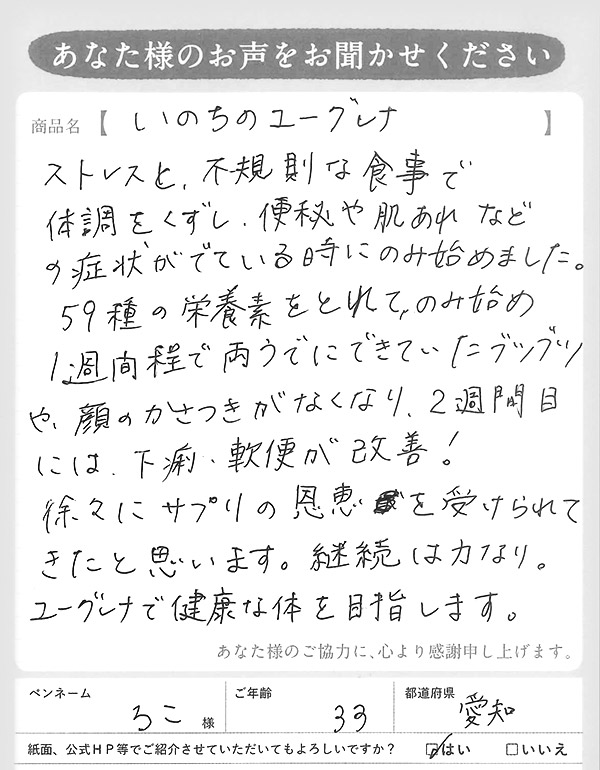 あなた様のお声をお聞かせください
商品名【 いのちのユーグレナ 】
ストレスと、不規則な食事で
体調をくずし、便秘や肌あれなど
の症状がでている時にのみ始めました。
59種の栄養素をとれて、のみ始め
1週間程で両うでにできていたブツブツ
や、顔のかさつきがなくなり、2週間目
には、下痢、軟便が改善!
徐々にサプリの恩恵を受けられて
きたと思います。継続は力なり。
ユーグレナで健康な体を目指します。
あなた様のご協力に、心より感謝申し上げます。
ペンネーム ろこ 様 ご年齢 33 都道府県 愛知
紙面、公式HP等でご紹介させていただいてもよろしいですか? ☑はい □いいえ